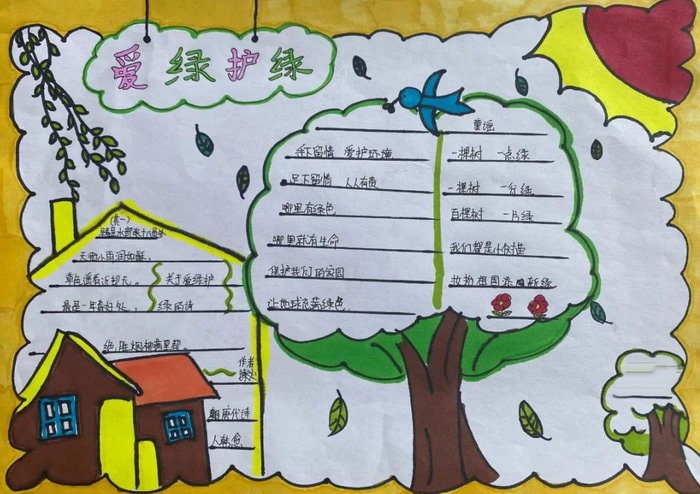 爱绿护绿
手下留情 爱护环境
足下留情 人人有责
哪里有绿色
哪里就有生命
保护我们的家园
让地球充满绿色
童谣
一棵树 一点绿
一棵树 一分绿
百棵树 一片绿
我们都是小树苗
妆扮祖国添新绿
(其一)
早春呈水部张十八员外
天街小雨润如酥,
草色遥看近却无。
最是一年春好处,
绝胜烟柳满皇都。
关于爱绿护
绿的诗
作者
朝唐代诗
人韩愈